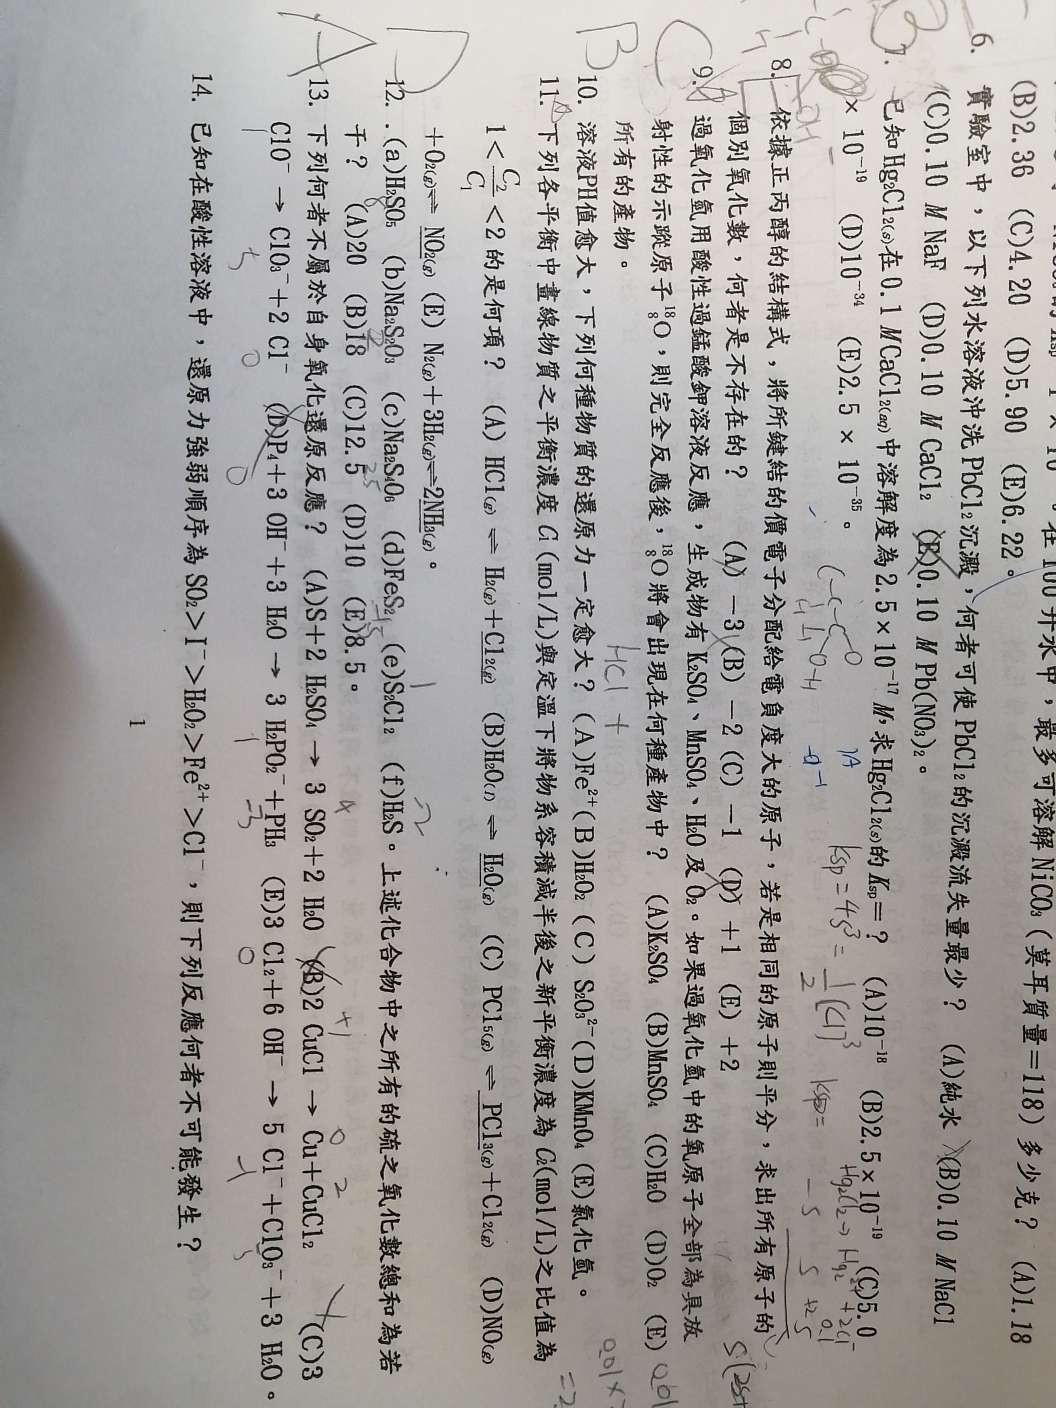 (B)2.36 (C)4.20 (D)5.90 (E)6.22。
6. 實驗室中，以下列水溶液沖洗PbCl₂沉澱，何者可使PbCl₂的沉澱流失量最少？ (A)純水 (B)0.10 M NaCl
(C)0.10 M NaF (D)0.10 M CaCl₂ (E)0.10 M Pb(NO₃)₂。
7. 已知Hg₂Cl₂(s)在0.1 MCaCl₂(aq)中溶解度為2.5×10⁻¹⁷ M，求Hg₂Cl₂(s)的Ksp＝？ (A)10⁻¹⁸ (B)2.5×10⁻¹⁹ (C)5.0
× 10⁻¹⁹ (D)10⁻³⁴ (E)2.5 × 10⁻³⁵。
8. 依據正丙醇的結構式，將所鍵結的價電子分配給電負度大的原子，若是相同的原子則平分，求出所有原子的
個別氧化數，何者是不存在的？ (A) −3 (B) −2 (C) −1 (D) +1 (E) +2
9. 過氧化氫用酸性過錳酸鉀溶液反應，生成物有K₂SO₄、MnSO₄、H₂O及O₂。如果過氧化氫中的氧原子全部為具放
射性的示蹤原子¹⁸₈O，則完全反應後，¹⁸₈O將會出現在何種產物中？ (A)K₂SO₄ (B)MnSO₄ (C)H₂O (D)O₂ (E)
所有的產物。
10. 溶液PH值愈大，下列何種物質的還原力一定愈大？(A)Fe²⁺(B)H₂O₂ (C) S₂O₃²⁻(D)KMnO₄ (E)氯化氫。
11. 下列各平衡中畫線物質之平衡濃度 C₁(mol/L)與定溫下將物系容積減半後之新平衡濃度為 C₂(mol/L)之比值為
1＜C₂/C₁＜2的是何項？ (A) HCl(g) ⇌ H₂(g)+Cl₂(g) (B)H₂O(l) ⇌ H₂O(g) (C) PCl₅(g) ⇌ PCl₃(g)+Cl₂(g) (D)NO(g)
+O₂(g)⇌ NO₂(g) (E) N₂(g)+3H₂(g)⇌2NH₃(g)。
12. .(a)H₂SO₅ (b)Na₂S₂O₃ (c)Na₂S₄O₆ (d)FeS₂ (e)S₂Cl₂ (f)H₂S。上述化合物中之所有的硫之氧化數總和為若
干？ (A)20 (B)18 (C)12.5 (D)10 (E)8.5。
13. 下列何者不屬於自身氧化還原反應？ (A)S+2 H₂SO₄ → 3 SO₂+2 H₂O (B)2 CuCl → Cu+CuCl₂ (C)3
ClO⁻ → ClO₃⁻+2 Cl⁻ (D)P₄+3 OH⁻+3 H₂O → 3 H₂PO₂⁻+PH₃ (E)3 Cl₂+6 OH⁻ → 5 Cl⁻+ClO₃⁻+3 H₂O。
14. 已知在酸性溶液中，還原力強弱順序為SO₂＞I⁻＞H₂O₂＞Fe²⁺＞Cl⁻，則下列反應何者不可能發生？
1